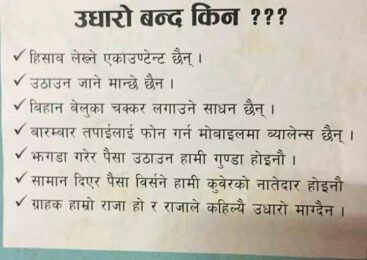 उधारो बन्द किन ???
✓ हिसाब लेख्ने एकाउण्टेन्ट छैन् ।
✓ उठाउन जाने मान्छे छैन ।
✓ बिहान बेलुका चक्कर लगाउने साधन छैन् ।
✓ बारम्बार तपाईलाई फोन गर्न मोबाइलमा ब्यालेन्स छैन् ।
✓ झगडा गरेर पैसा उठाउन हामी गुण्डा होइनौ ।
✓ सामान दिएर पैसा विर्सने हामी कुवेरको नातेदार होइनौ
✓ ग्राहक हाम्रो राजा हो र राजाले कहिल्यै उधारो माग्दैन ।